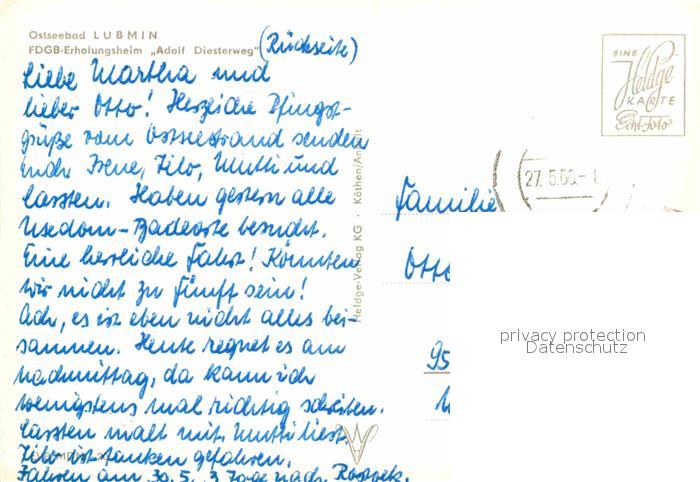 Ostseebad LUBMIN
FDGB-Erholungsheim „Adolf Diesterweg"
(Rückseite)
Liebe Martha und
lieber Otto! Herzliche Pfingst-
grüße vom Ostseestrand senden
euch Irene, Tilo, Mutti und
Carsten. Haben gestern alle
Usedom-Badeorte besucht.
Eine herrliche Fahrt! Könnten
wir nicht zu fünft sein!
Ach, es ist eben nicht alles bei-
sammen. Heute regnet es am
Nachmittag, da kann ich
wenigstens mal richtig schreiben.
Carsten malt mit. Mutti liest.
Tilo ist tanken gefahren.
Fahren am 30.5. 3 Tage nach Rostock.
Heldge-Verlag KG · Köthen/Anhalt
EINE
Heldge
KARTE
Echt Foto
27.5.66.-8
Familie
Otto
95
privacy protection
Datenschutz